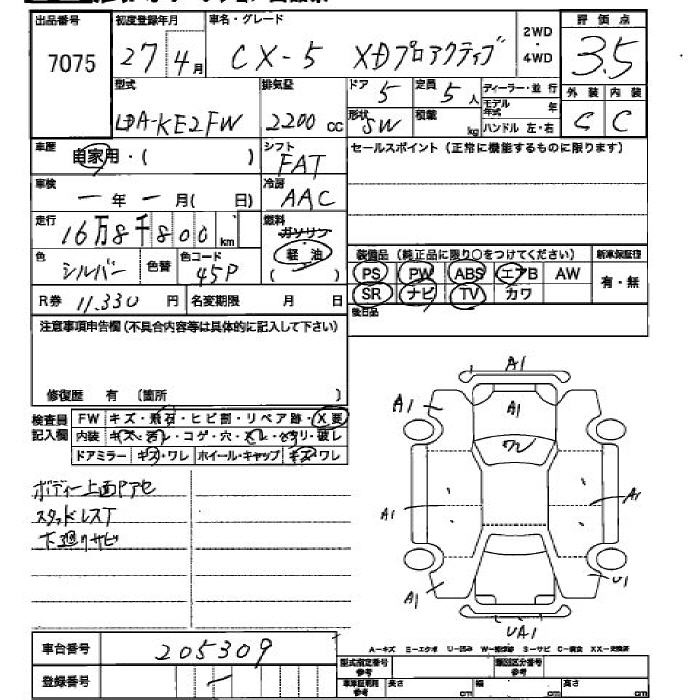 出品番号 初度登録年月 車名・グレード 2WD・4WD 評価点
7075 27年4月 CX-5 XDプロアクティブ 3.5
型式 排気量 ドア 定員 ディーラー・並行 外装 内装
LDA-KE2FW 2200cc 5 5人 モデル年式 年 C C
形状 SW 積載 kg ハンドル 左・右
車歴 自家用・( ) シフト FAT セールスポイント(正常に機能するものに限ります)
車検 ー年ー月( 日) 冷房 AAC
走行 16万8千800km 燃料 ガソリン 軽油 ( )
色 シルバー 色替 色コード 45P
装備品(純正品に限り○をつけてください) 新車保証書
PS PW ABS エアB AW 有・無
SR ナビ TV カワ
R券 11,330円 名変期限 月 日 後日品
注意事項申告欄(不具合内容等は具体的に記入して下さい)
修復歴 有 (箇所 )
検査員記入欄 FW キズ・飛石・ヒビ割・リペア跡・X要
内装 キズ・汚レ・コゲ・穴・
ドアミラー キズ・ワレ ホイール・キャップ キズ・ワレ
ボディー上面
スタッドレスT
下廻りサビ
A1
A1 A1
ワレ
A1 A1
A1 U1
UA1
A-キズ E-エクボ U-凹み S-サビ C-腐食 XX-交換済
車台番号 205309
登録番号 ー
型式指定番号 参考 類別区分番号 参考
長さ cm 幅 cm 高さ cm